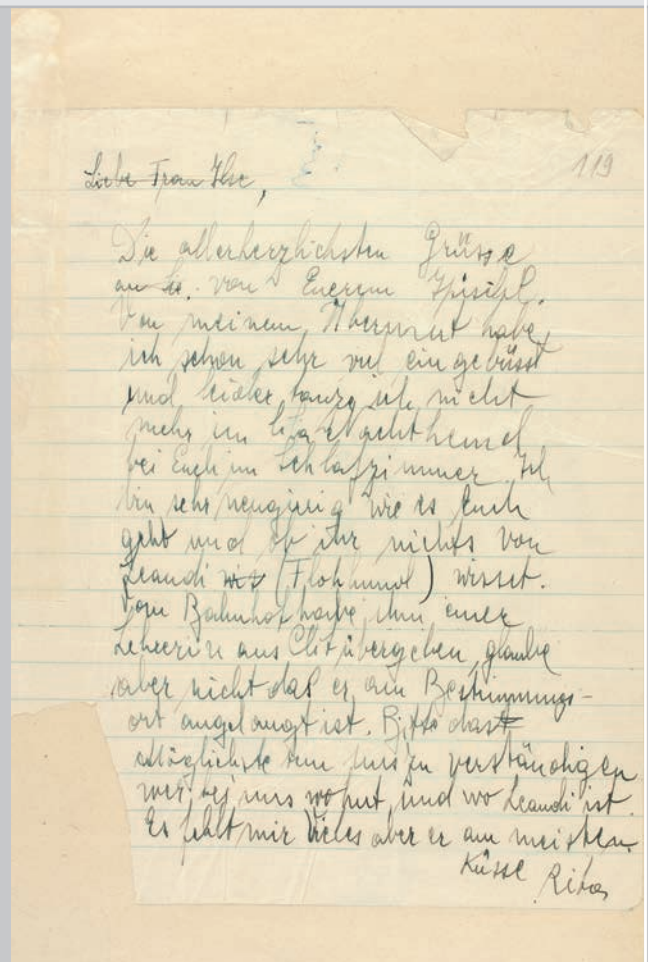 119
Liebe Frau Ilse,
Die allerherzlichsten Grüsse
an von Euerem
Von meinem Übermut habe
ich schon sehr viel eingebüsst
und leider tanze ich nicht
mehr im lila Nachthemd
bei Euch im Schlafzimmer. Ich
bin sehr neugierig wie es Euch
geht und ob ihr nichts von
Leandi (Flohhund) wisset.
Vom Bahnhof habe ihn einer
Lehrerin aus übergeben, glaube
aber nicht das er am Bestimmungs-
ort angelangt ist. Bitte das
Möglichste um uns zu verständigen
wer bei uns wohnt und wo Leandi ist.
Es fehlt mir Vieles aber er am meisten.
Küsse